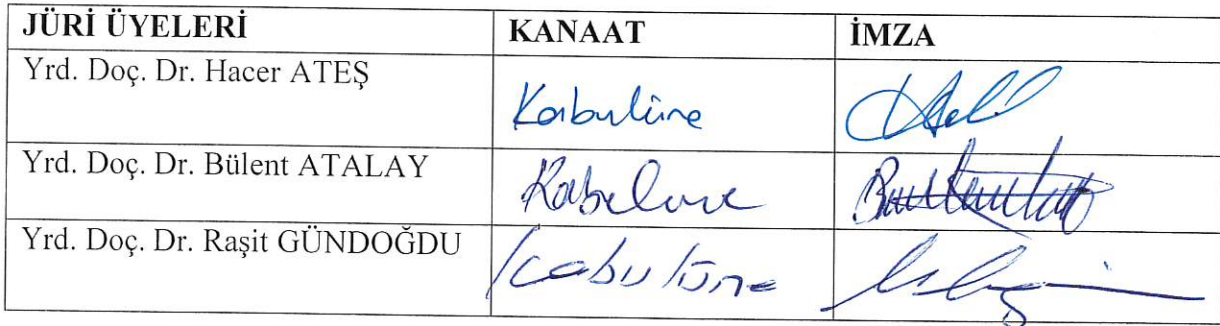 JÜRİ ÜYELERİ KANAAT İMZA
Yrd. Doç. Dr. Hacer ATEŞ Kabulüne
Yrd. Doç. Dr. Bülent ATALAY Kabulüne
Yrd. Doç. Dr. Raşit GÜNDOĞDU Kabulüne